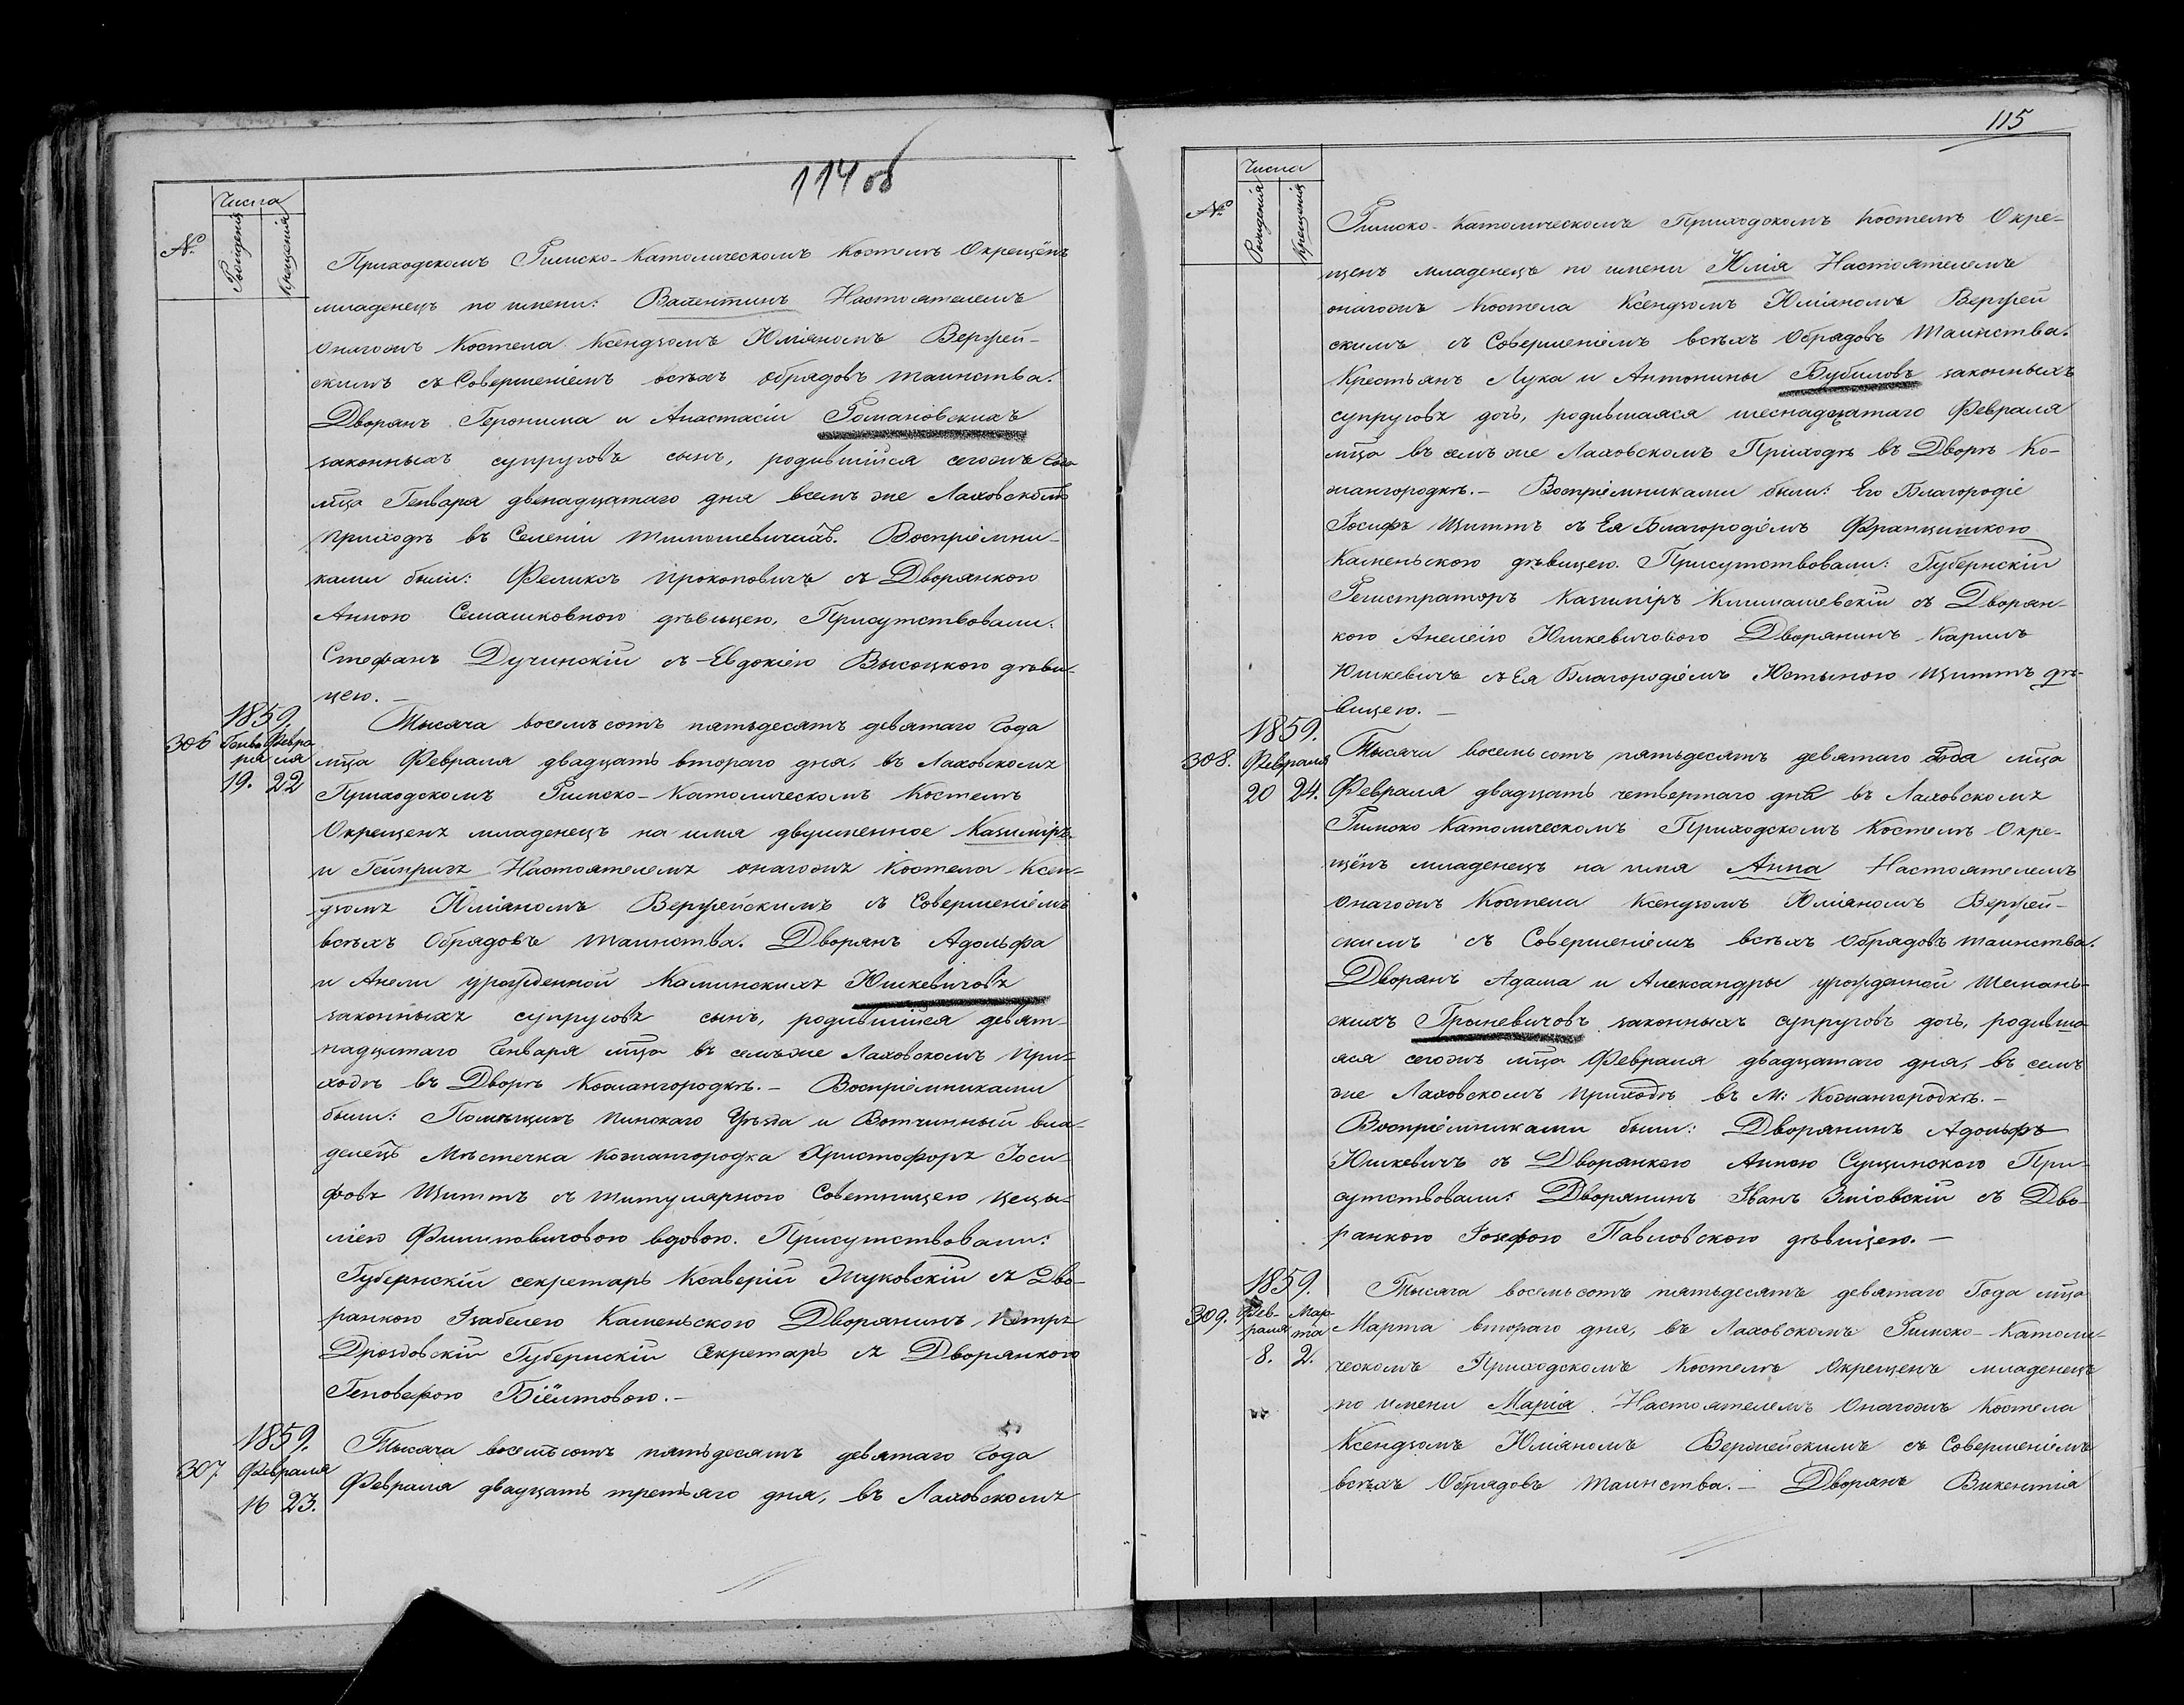 114 об
Числа
№ Рожденія Крещенія
Приходскомъ Римско-Католическомъ Костелѣ Окрещёнъ
младенецъ по имени: Валентинъ Настоятелемъ
онагожъ Костела Ксендзомъ Юліяномъ Вержей-
скимъ съ Совершеніемъ всѣхъ обрядовъ таинства.
Дворянъ Геронима и Анастасіи Романовскихъ
законныхъ супруговъ сынъ, родившійся сегожъ года
мца Генваря двенадцатаго дня всемъ же Лаховскомъ
приходѣ въ Селеніи Тимошевичахъ. Воспріемни-
ками были: Феликсъ Прокоповичъ съ Дворянкою
Анною Семашковною дѣвицею, Присутствовали:
Стефанъ Дучинскій съ Евдокіею Высоцкою дѣви-
цею. —
1859.
306 Генваря Февраля
19. 22
Тысяча восемъ сотъ пятьдесятъ девятаго года
мца Февраля двадцать втораго дня, въ Лаховскомъ
Приходскомъ Римско-Католическомъ Костелѣ
Окрещенъ младенецъ на имя двуименное Казимиръ
и Генрихъ Настоятелемъ онагожъ Костела Ксен-
дзомъ Юліяномъ Вержейскимъ съ Совершеніемъ
всѣхъ Обрядовъ таинства. Дворянъ Адольфа
и Анели урожденной Каминскихъ Юшкевичовъ
законныхъ супруговъ сынъ, родившійся девят-
надцатаго Генваря мца въ семъ же Лаховскомъ При-
ходѣ въ Дворѣ Кожангородкѣ. — Воспріемниками
были: Помѣщикъ Пинскаго Уѣзда и Вотчинный вла-
делецъ Мѣстечка Кожангородка Христофоръ Іоси-
фовъ Щиттъ съ титулярною Советницею Цецы-
ліею Филиповичовою вдовою. Присутствовали:
Губернскій секретарь Ксаверій Жуковскій съ Дво-
рянкою Изабелею Каменьскою Дворянинъ, Петръ
Дроздовскій Губернскій Секретарь съ Дворянкою
Геновефою Біёлтовою. —
1859.
307 Февраля
16 23.
Тысяча восемъ сотъ пятьдесятъ девятаго года
Февраля двадцать третьяго дня, въ Лаховскомъ
115
Числа
№ Рожденія Крещенія
Римско-Католическомъ Приходскомъ Костелѣ Окре-
щенъ младенецъ по имени Юлія Настоятелемъ
онагожъ Костела Ксендзомъ Юліяномъ Вержей
скимъ съ Совершеніемъ всѣхъ Обрядовъ Таинства.
Крестьянъ Лука и Антонины Бубиловъ законныхъ
супруговъ дочь, родившаяся шеснадцатаго Февраля
мца въ семъ же Лаховскомъ Приходѣ въ Дворѣ Ко-
жангородкѣ. — Воспріемниками были: Его Благородіе
Іосифъ Щиттъ съ Ея Благородіемъ Францишкою
Каменьскою дѣвицею. Присутствовали: Губернскій
Регистраторъ Казимиръ Климашевскій съ Дворян-
кою Анелею Юшкевичовою Дворянинъ Карилъ
Юшкевичъ съ Ея Благородіемъ Юстыною Щиттъ дѣ-
вицею. —
1859.
308. Февраля
20 24.
Тысяча восемь сотъ пятьдесятъ девятаго Года мца
Февраля двадцать четвертаго дня въ Лаховскомъ
Римско Католическомъ Приходскомъ Костелѣ Окре-
щёнъ младенецъ на имя Анна Настоятелемъ
онагожъ Костела Ксендзомъ Юліяномъ Вержей-
скимъ съ Совершеніемъ всѣхъ обрядовъ таинства.
Дворянъ Адама и Александры урожденной Шемань-
скихъ Грыневичовъ законныхъ супруговъ дочь, родивша-
яся сегожъ мца Февраля двадцатаго дня, въ семъ
же Лаховскомъ приходѣ въ М: Кожангородкѣ. —
Воспріемниками были: Дворянинъ Адольфъ
Юшкевичъ съ Дворянкою Анною Сущинскою При-
сутствовали: Дворянинъ Иванъ Зміовскій съ Дво-
рянкою Іозефою Павловскою дѣвицею. —
1859.
309. Фев- Мар-
раля та
8. 2.
Тысяча восемьсотъ пятьдесятъ девятаго Года мца
Марта втораго дня, въ Лаховскомъ Римско-Католи-
ческомъ Приходскомъ Костелѣ Окрещенъ младенецъ
по имени Марія Настоятелемъ Онагожъ Костела
Ксендзомъ Юліяномъ Вержейскимъ съ Совершеніемъ
всѣхъ Обрядовъ Таинства. — Дворянъ Викентія